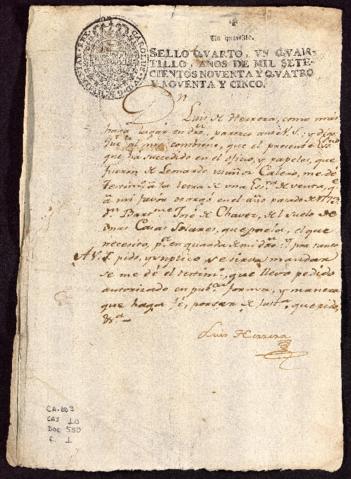 Un quartillo.
SELLO QVARTO, VN QVAR-
TILLO, AÑOS DE MIL SETE-
CIENTOS NOVENTA Y QVATRO
Y NOVENTA Y CINCO.
Dn
Luis de Herrera, como mas
haya lugar en dro. parezco ante V. y digo
Que al mio combiene, que el presente Esno
que ha sucedido en el oficio, y papeles, que
fueron de Leonardo Muñoz Calero, me dé
Testimo. a la letra de una Esra. de venta, q
à mi favor otorgó en el año pasado de
Dn. José de Chavez, de el suelo de
unas Casas Solares, que poseo, el que
necesito, pa. en guarda de mi dro. pr. tanto
A V. pido, y suplico se sirva mandar
se me dé el testimo. que llevo pedido
autorizado en pubca. forma, y manera
que haga fé, por ser de justa.
Luis Herrera
CA-JO3
CAJ 10
DOC 550
f. 1